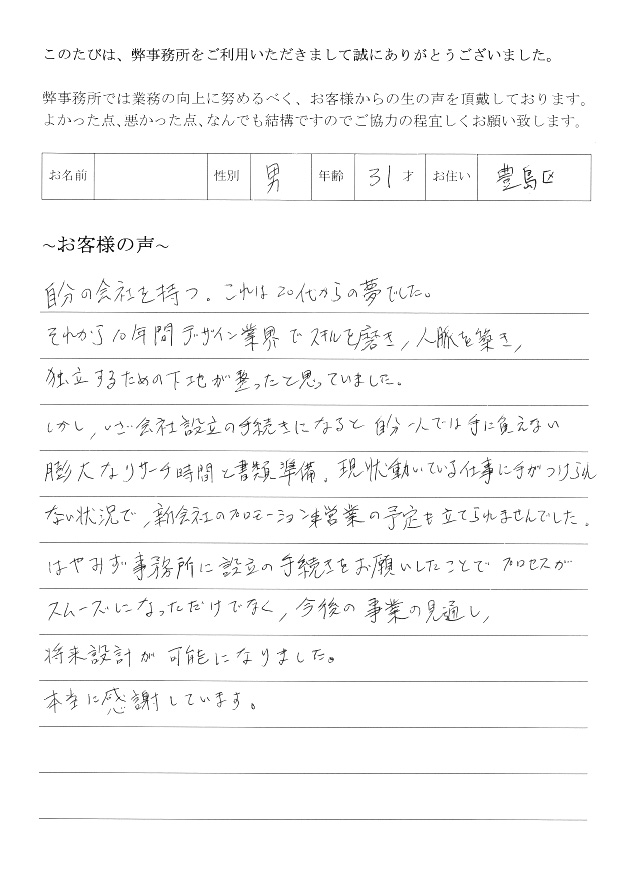 このたびは、弊事務所をご利用いただきまして誠にありがとうございました。
弊事務所では業務の向上に努めるべく、お客様からの生の声を頂戴しております。
よかった点、悪かった点、なんでも結構ですのでご協力の程宜しくお願い致します。
お名前 性別 男 年齢 31才 お住い 豊島区
~お客様の声~
自分の会社を持つ。これは20代からの夢でした。
それから10年間デザイン業界でスキルを磨き、人脈を築き、
独立するための下地が整ったと思っていました。
しかし、いざ会社設立の手続きになると自分一人では手に負えない
膨大なリサーチ時間と書類準備。現状働いている仕事に手がつけられ
ない状況で、新会社のプロモーションや営業の予定も立てられませんでした。
はやみず事務所に設立の手続きをお願いしたことでプロセスが
スムーズになっただけでなく、今後の事業の見通し、
将来設計が可能になりました。
本当に感謝しています。